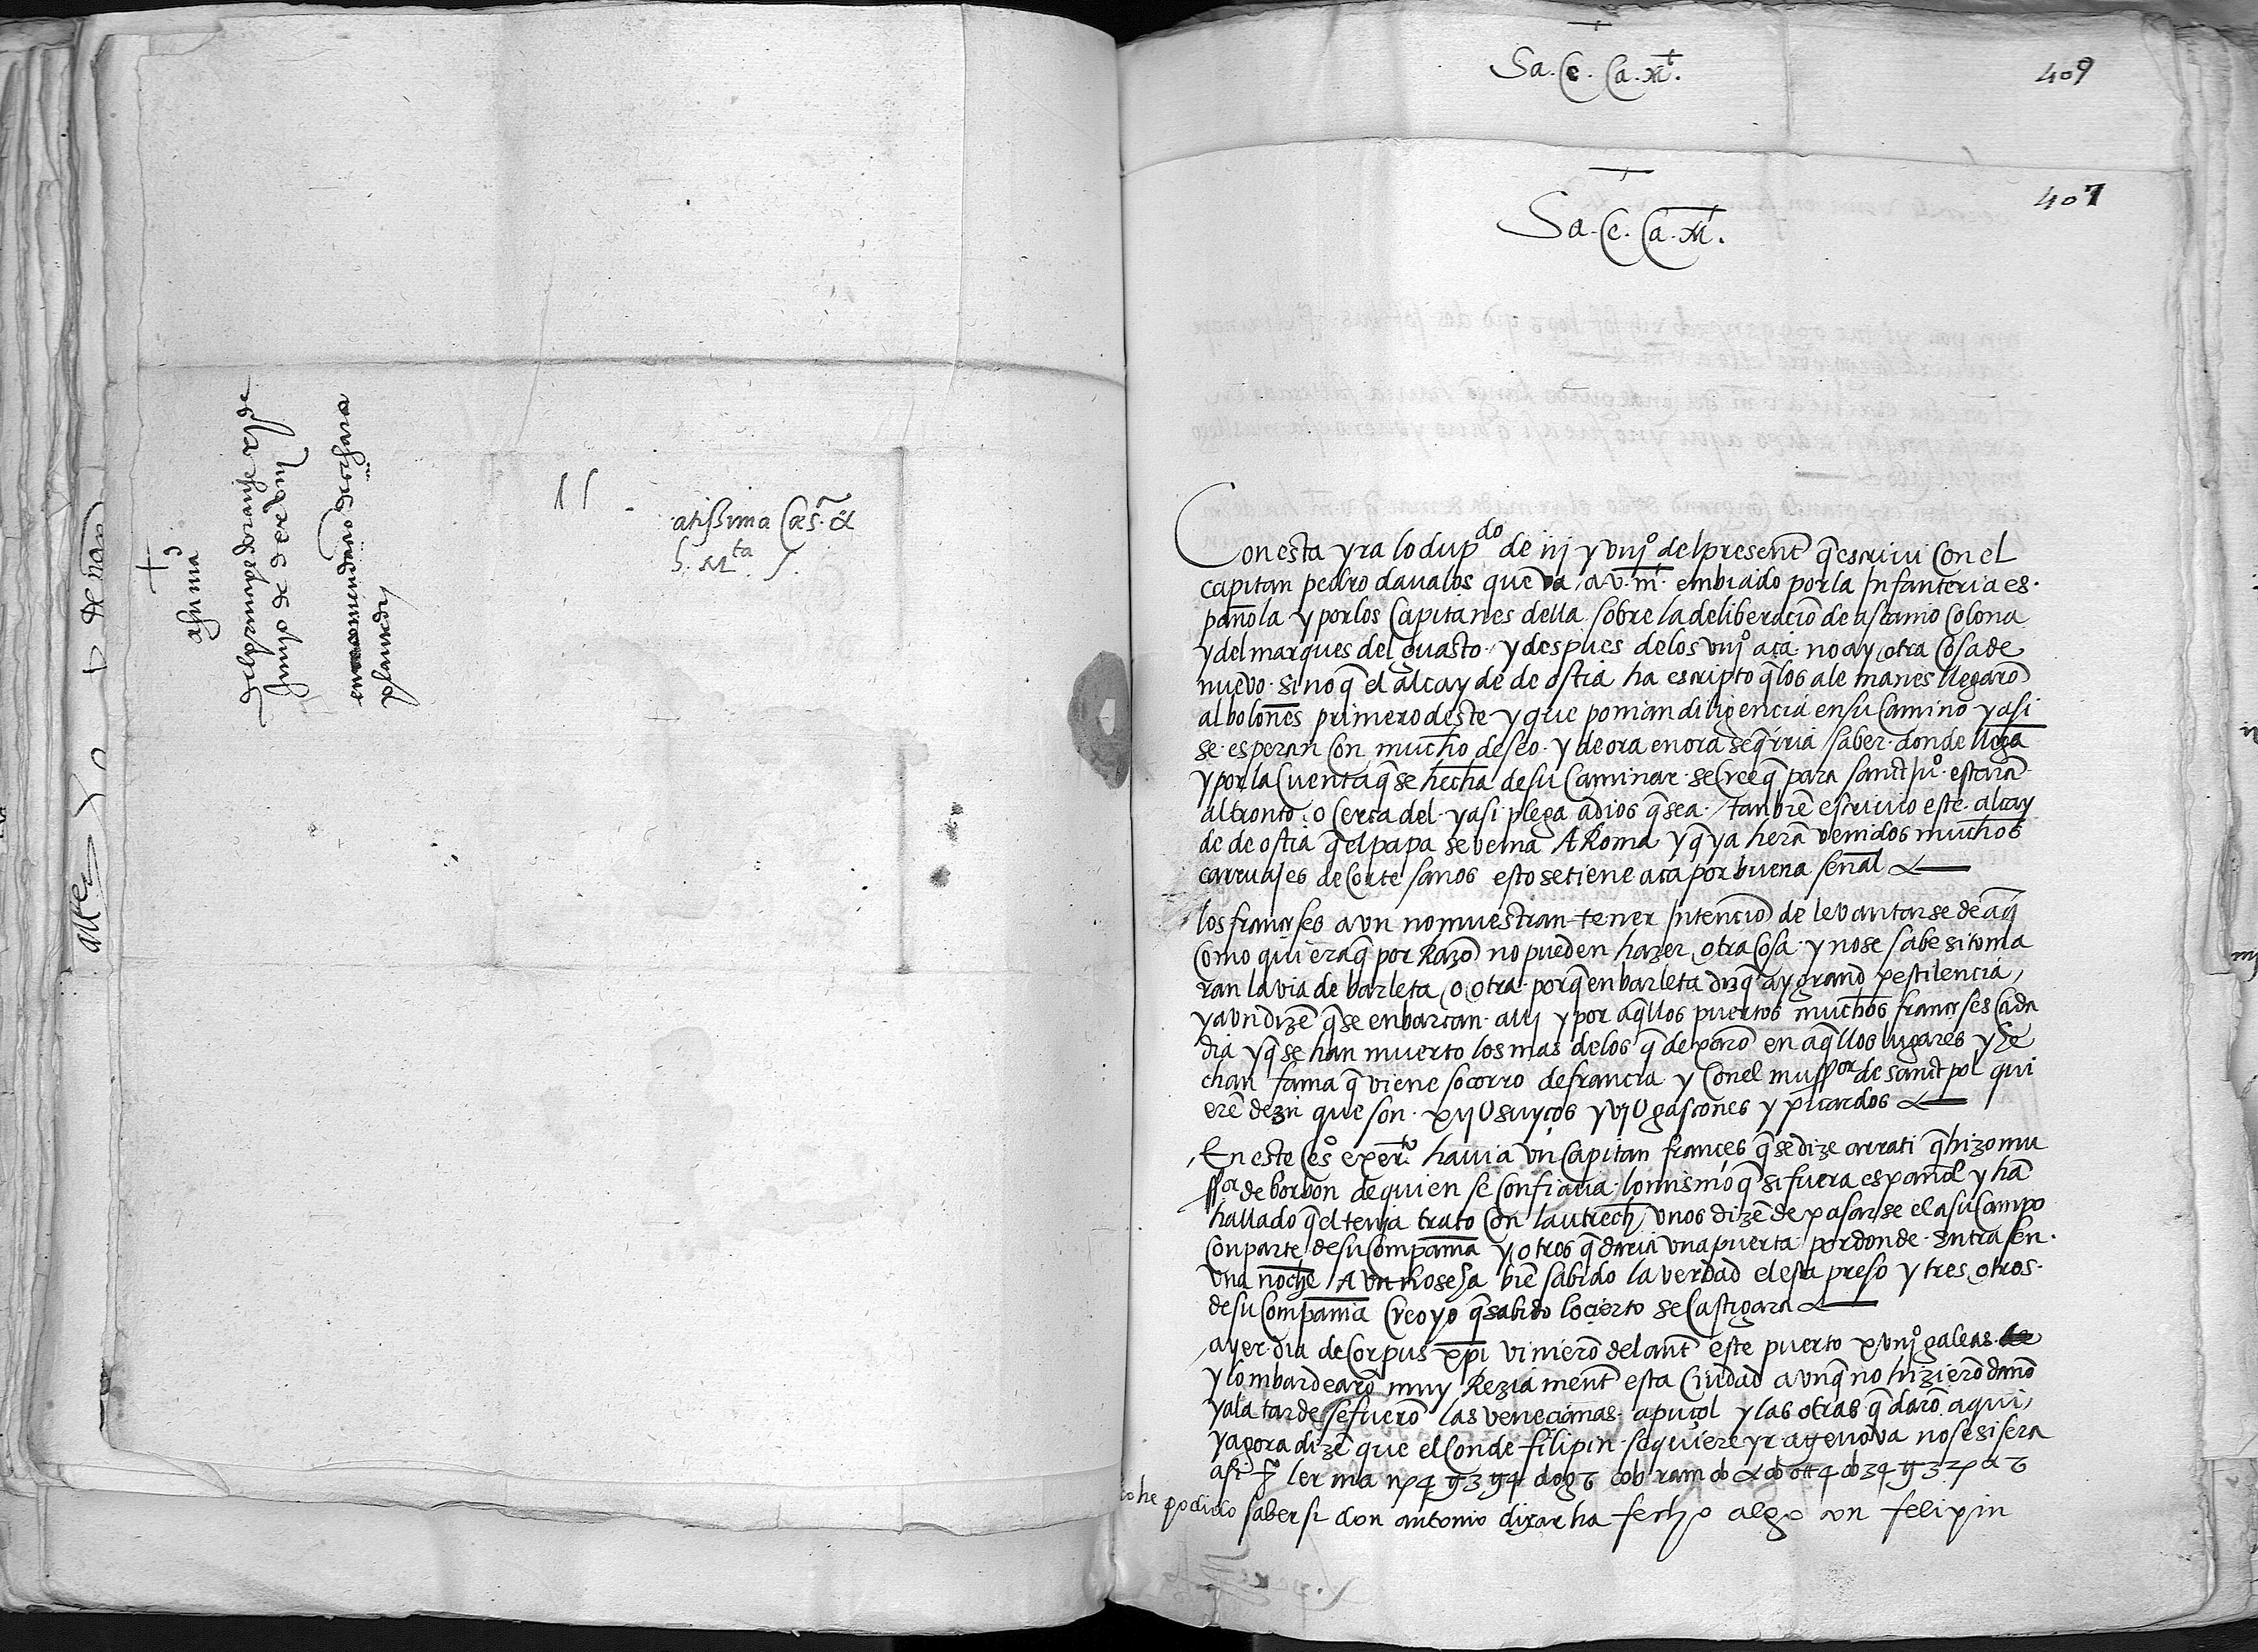 +
a su mag
del principe doranje de
Junyo de dxxviij
atissima Cesª. &
h. Mta.
Sa. Ce. Ca. Mt.
409
Sa. Ce. Ca. M.
407
Con esta yra lo dupdo de iij y viijº del present q̃ escrivi con el
capitan pedro davalos que va a v. mt. embiado por la Infanteria es-
pañola y por los Capitanes della sobre la deliberaciõ de ascanio Colona
y del marques del guasto. y despues de los viijº aca no ay otra Cosa de
nuevo. sino q̃ el alcayde de ostia ha escripto q̃ los alemanes llegarõ
al boloñes primero deste y que ponian diligencia en su Camino y asi
se esperan con mucho deseo. y de ora en ora se q̃rria saber donde llegã
y por la Cuenta q̃ se hecha de su Caminar se Cree q̃ para sanct juº. estarã
al tronto. o Cerca del. y asi plega a dios q̃ sea. / tanbiẽ escrivio este alcay
de de ostia q̃ el papa se venia A Roma y q̃ ya herã venidos muchos
carruajes de Cortesanos esto se tiene aca por buena señal
los franceses aun no muestran tener Intenciõ de levantarse de aq̃
Como quiera q̃ por Razõ no pueden hazer otra Cosa y no se sabe si toma
ran la via de barleta o otra. porq̃ en barleta diz q̃ ay grand pestilencia
y aun dizẽ q̃ se enbarcan alli y por aq̃llos puertos muchos franceses Cada
dia y q̃ se han muerto los mas de los q̃ dexarõ en aq̃llos lugares y he
chan fama q̃ viene socorro de francia y Con el mussor de sanct pol qui
erẽ dezir que son. xijU suyços y vjU gascones y picardos
En este Ces. exerto. havia un Capitan frances q̃ se dize arrati q̃ hizo mu
ssor de borbon de quien se Confiava lo mismo q̃ si fuera español y hã
hallado q̃ el tenja trato Con lautrech, unos dizẽ de pasarse el a su Campo
Con parte de su Compañia y otros q̃ daria una puerta por donde entrasen
una noche Aun no se ha biẽ sabido la verdad el esta preso y tres otros
de su Compañia Creo yo q̃ sabido lo cierto se Castigara
ayer dia de Corpus xp̃i vinierõ delant este puerto xviijº galeas
y lombardearõ muy Reziament esta Ciudad aunq̃ no hizierõ daño
y a la tarde se fuerõ las venecianas a puçol y las otras q̃darõ aqui
y agora dizẽ que el Conde filipin se quiere yr a genova no se si sera
asi
he podido saber si don antonio dixar ha fecho algo con felipin